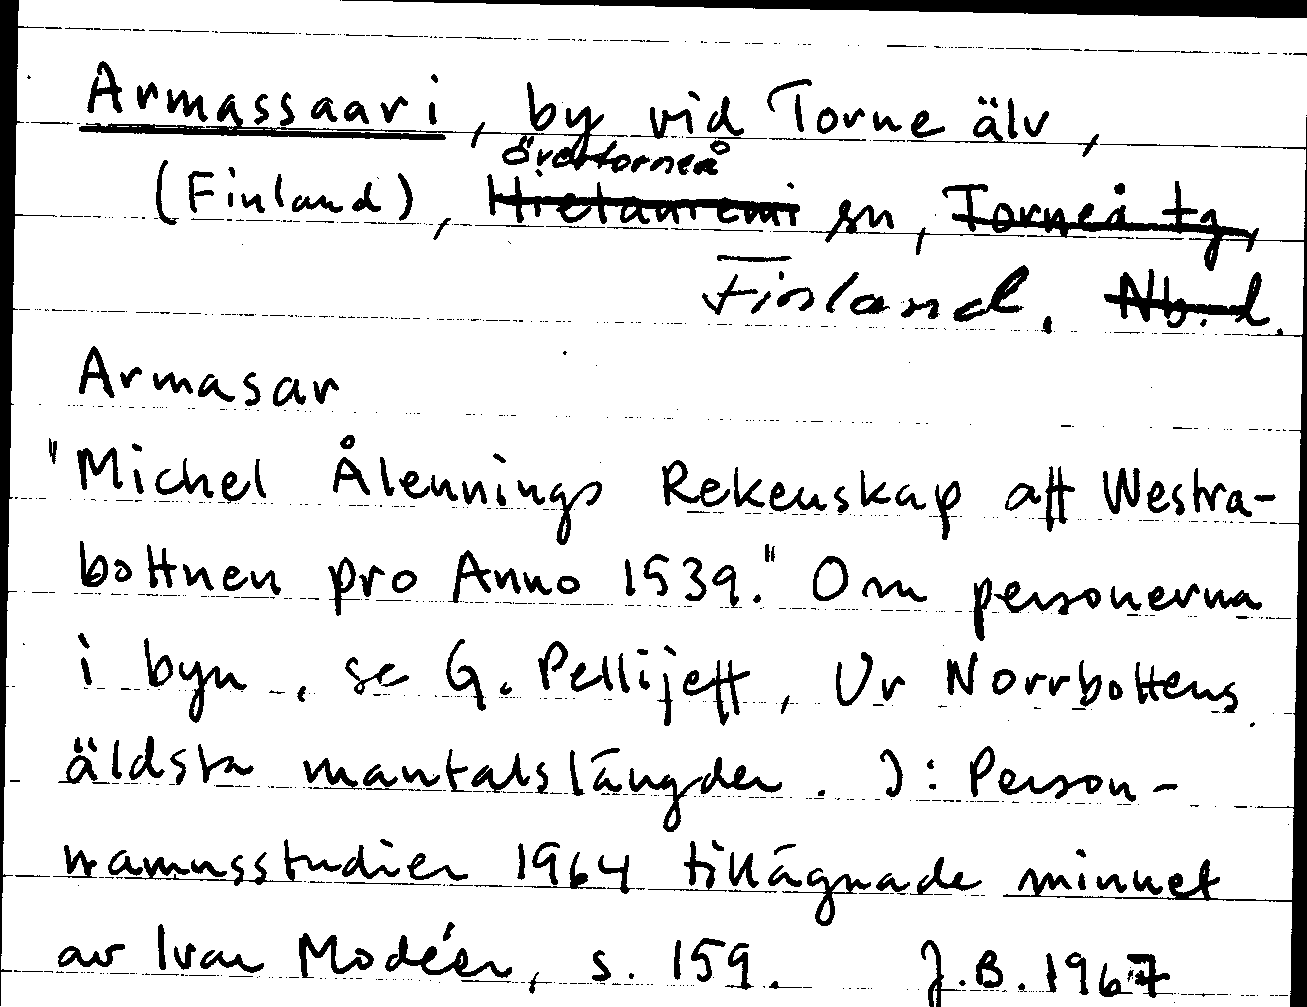 Armassaari, by vid Torne älv,
övertorneå
(Finland), Hietaniemi sn, Torneå tg,
Finland. Nb. l.
Armasar
"Michel Ålennings Rekenskap aff Westra-
bottnen pro Anno 1539." Om personerna
i byn, se G. Pellijeff, Ur Norrbottens
äldsta mantalslängder. I: Person-
namnsstudier 1964 tillägnade minnet
av Ivar Modéer, s. 159. J.B. 1967